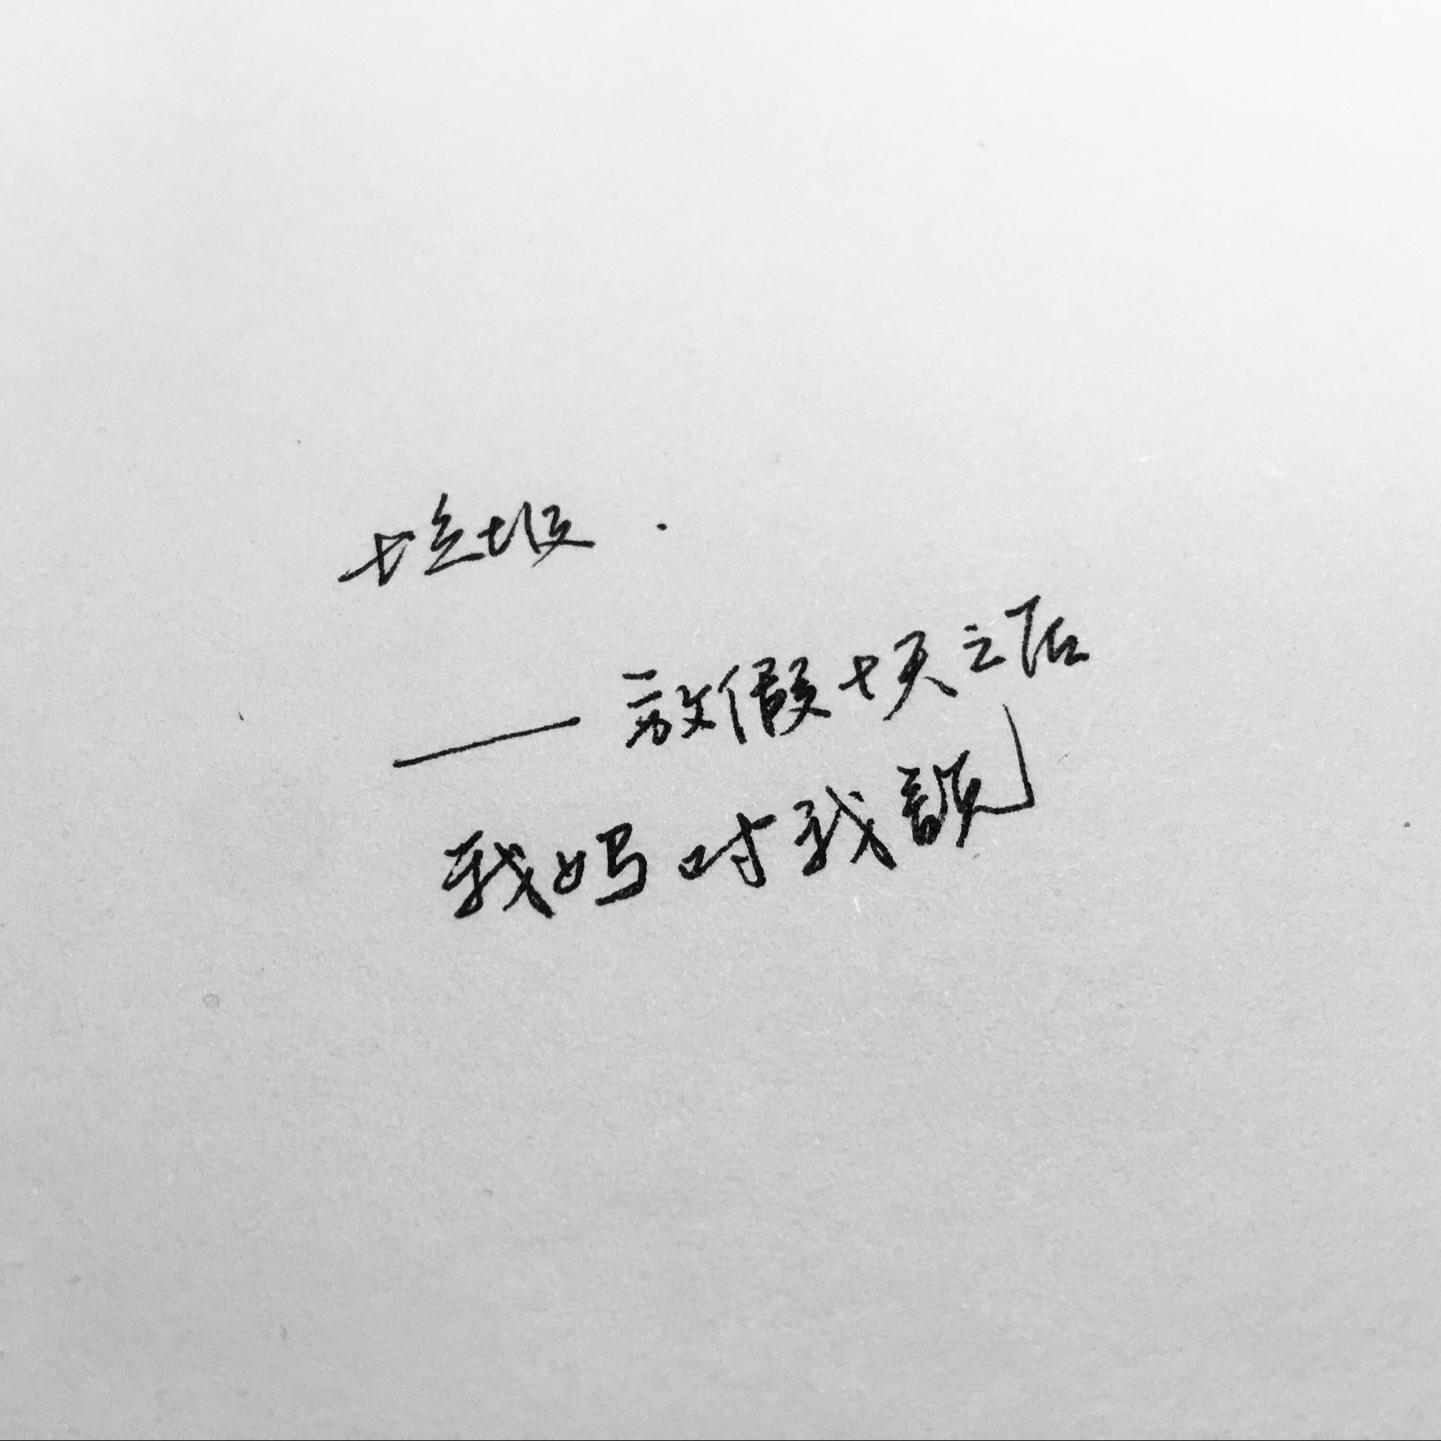 垃圾.
——放假七天之后
我妈对我說